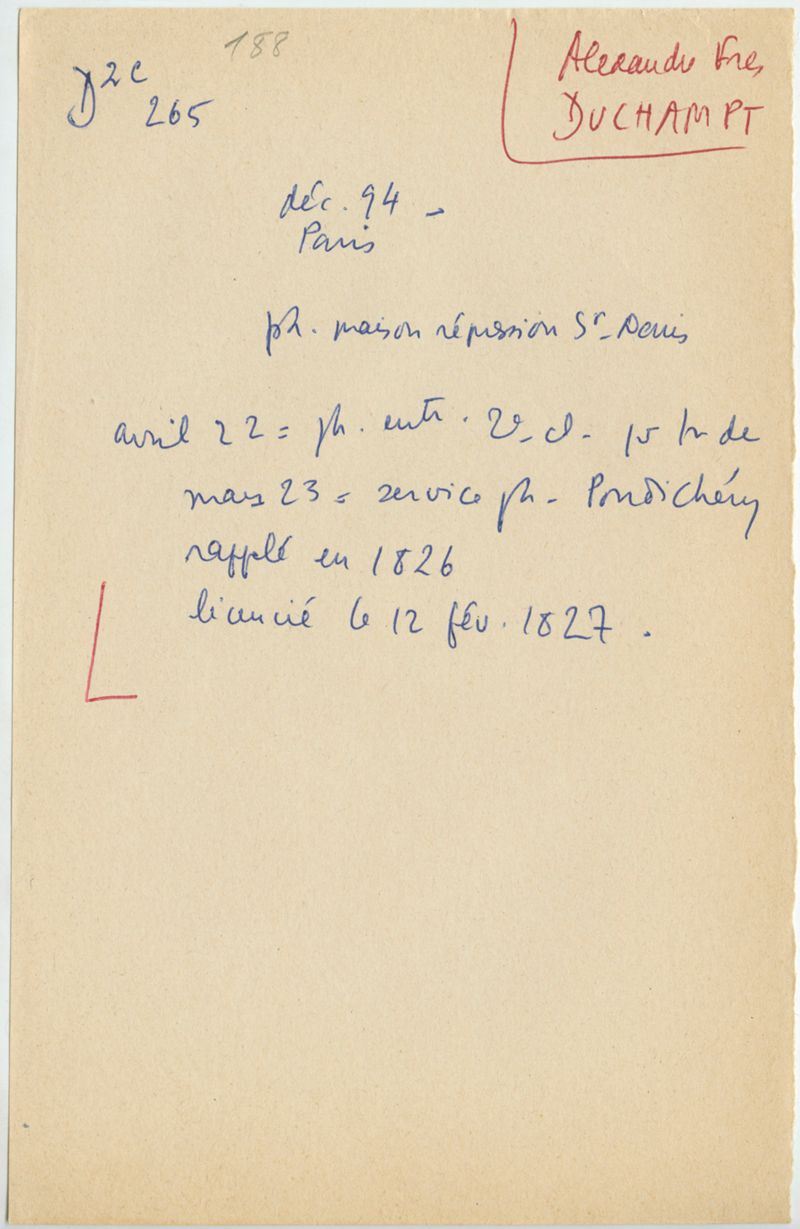 188
D 2c
265
Alexandre Fres
DUCHAMPT
déc. 94 -
Paris
ph. maison répression St-Denis
avril 22 = ph. entr. 2e cl. de
mars 23 = service ph - Pondichéry
rappelé en 1826
licencié le 12 fév. 1827.